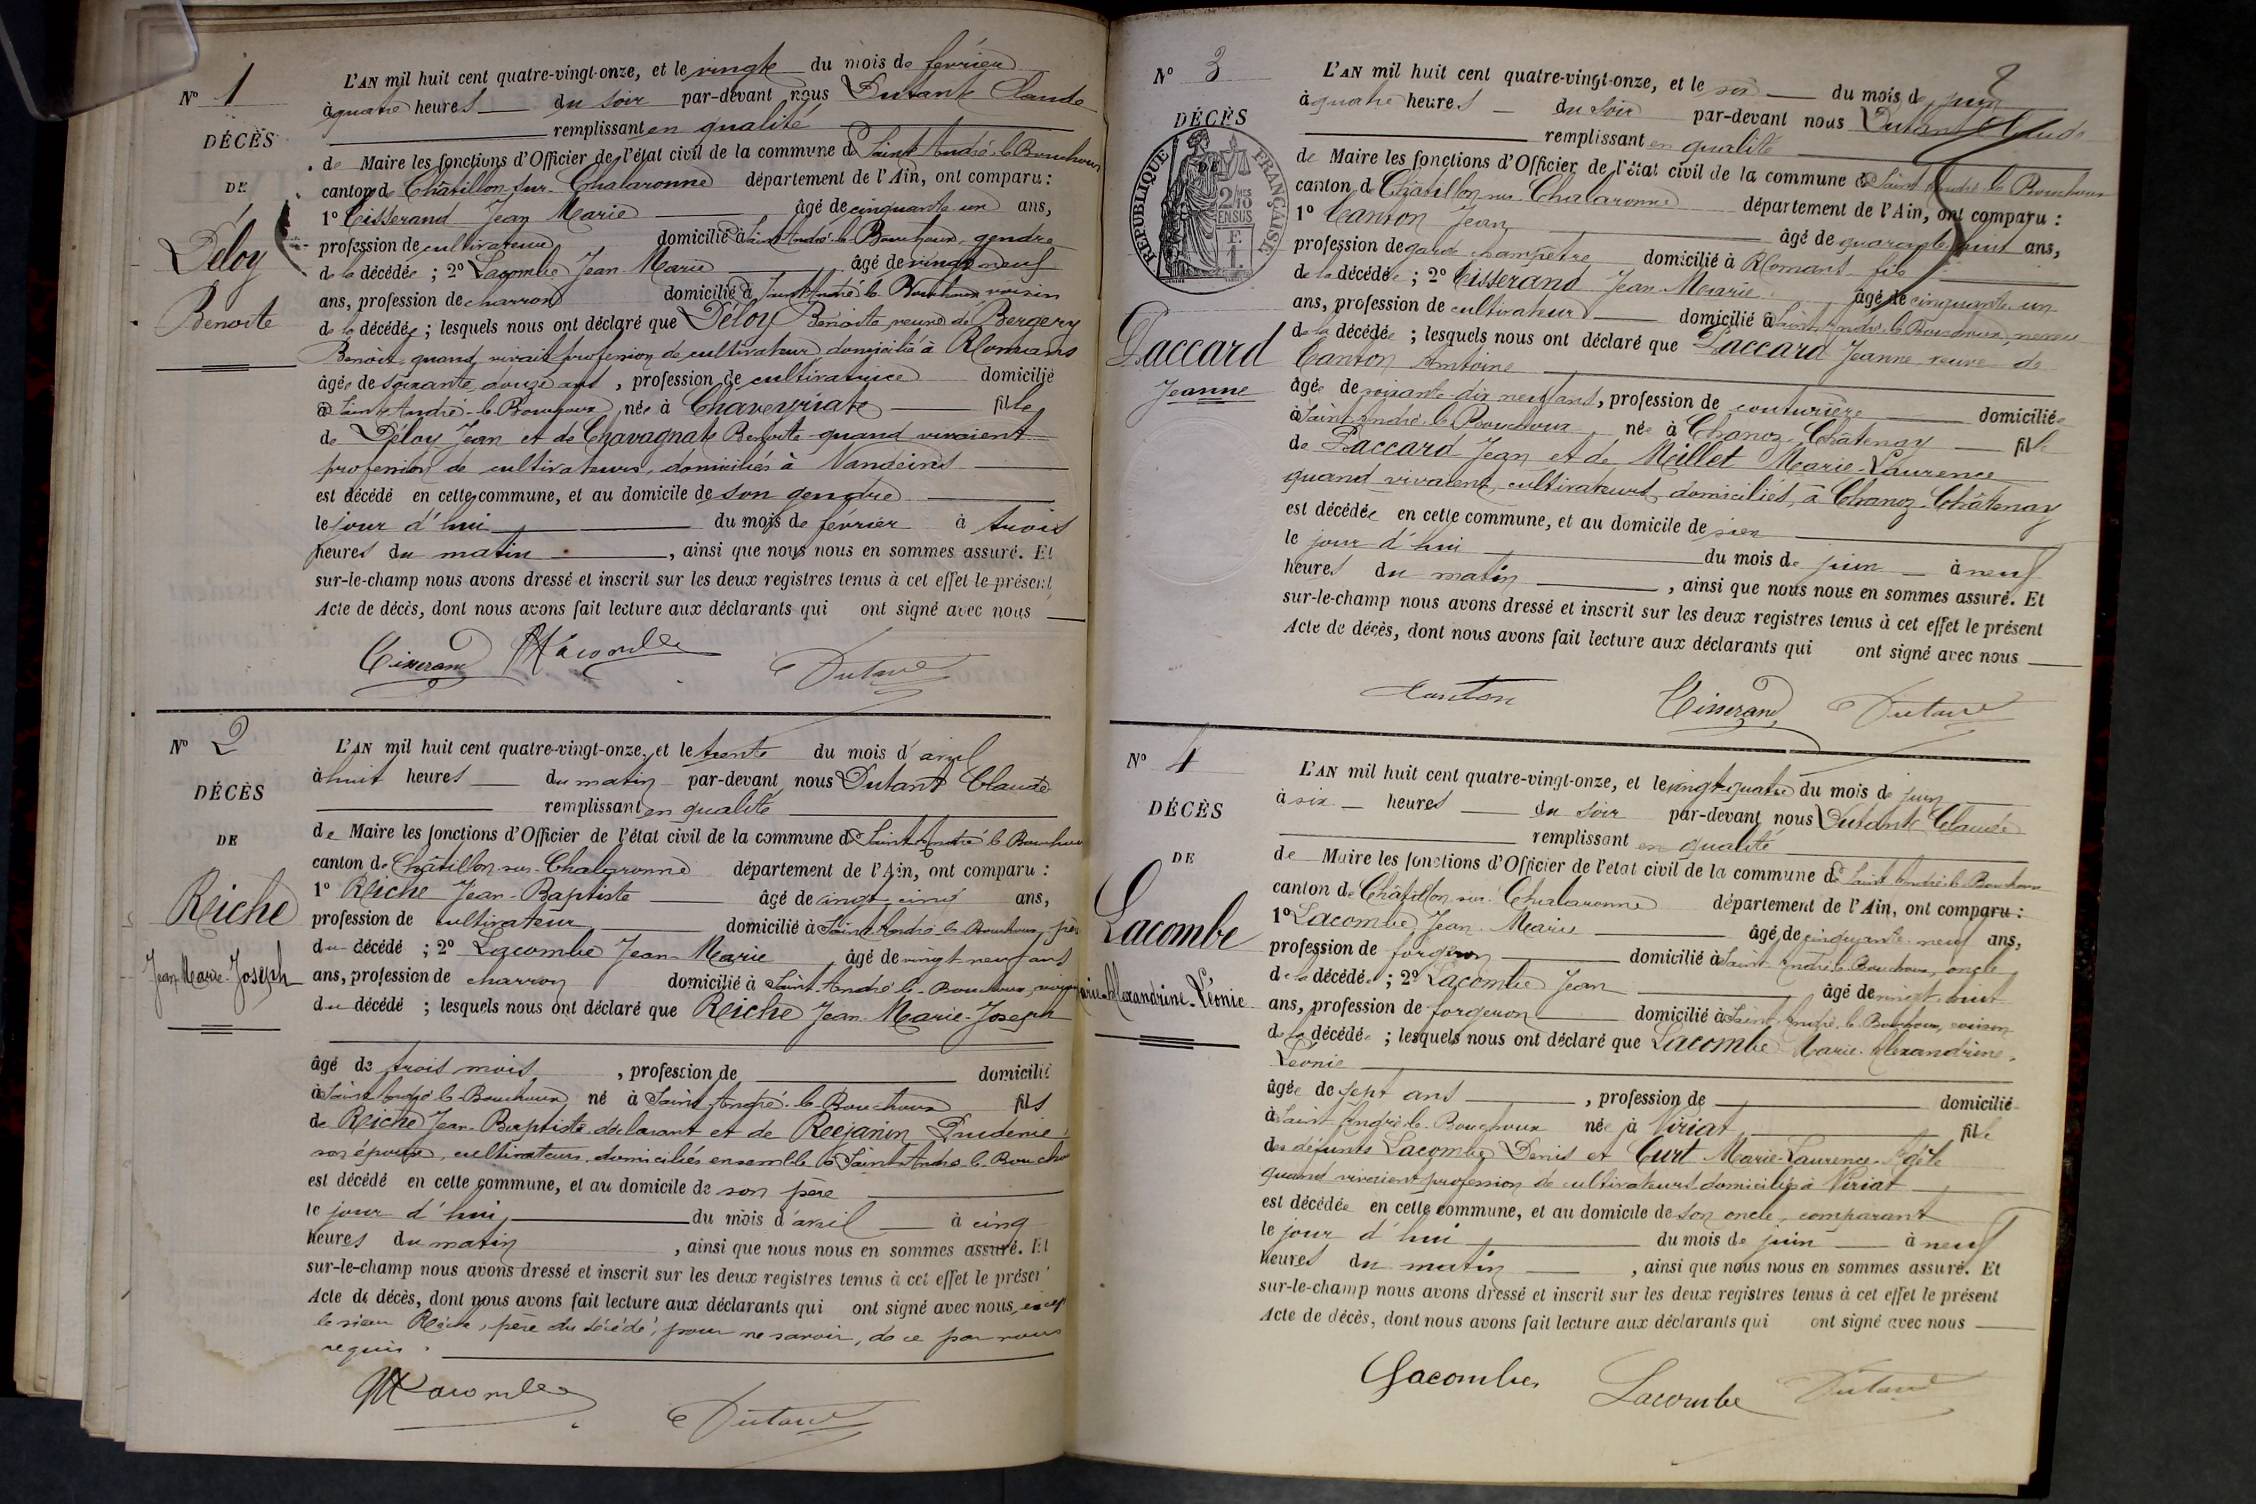 N° 1
DÉCÈS
DE
Déloy
Benoite
L'AN mil huit cent quatre-vingt-onze, et le vingt du mois de février
à quatre heures du soir par-devant nous Dutant Claude
remplissant en qualité
de Maire les fonctions d'Officier de l'état civil de la commune de Saint André-le-Bouchoux
canton de Châtillon-sur-Chalaronne département de l'Ain, ont comparu :
1° Tisserand Jean Marie âgé de cinquante un ans,
profession de cultivateur domicilié à Saint André-le-Bouchoux, gendre
de la décédée ; 2° Lacombe Jean-Marie âgé de vingt neuf
ans, profession de charron domicilié à Saint André le Bouchoux, voisin
de la décédée ; lesquels nous ont déclaré que Déloy Benoite veuve de Bergery
Benoit, quand vivait profession de cultivateur domicilié à Romans
âgée de soixante douze ans, profession de cultivatrice domiciliée
à Saint André-le-Bouchoux, née à Chaveyriat fille
de Déloy Jean et de Chavagnat Benoite quand vivaient
profession de cultivateurs, domiciliés à Vandeins
est décédé en cette commune, et au domicile de son gendre
le jour d'hui du mois de février à trois
heures du matin, ainsi que nous nous en sommes assuré. Et
sur-le-champ nous avons dressé et inscrit sur les deux registres tenus à cet effet le présent
Acte de décès, dont nous avons fait lecture aux déclarants qui ont signé avec nous
Tisserand Lacombe Dutant
N° 2
DÉCÈS
DE
Reiche
Jean-Marie-Joseph
L'AN mil huit cent quatre-vingt-onze, et le trente du mois d'avril
à huit heures du matin par-devant nous Dutant Claude
remplissant en qualité
de Maire les fonctions d'Officier de l'état civil de la commune de Saint André le Bouchoux
canton de Châtillon-sur-Chalaronne département de l'Ain, ont comparu :
1° Reiche Jean-Baptiste âgé de vingt cinq ans,
profession de cultivateur domicilié à Saint André-le-Bouchoux, père
du décédé ; 2° Lacombe Jean-Marie âgé de vingt neuf ans
ans, profession de charron domicilié à Saint-André-le-Bouchoux, voisin
du décédé ; lesquels nous ont déclaré que Reiche Jean-Marie-Joseph
âgé de trois mois, profession de domicilié
à Saint André le Bouchoux né à Saint-André-le-Bouchoux fils
de Reiche Jean-Baptiste déclarant et de
son épouse, cultivateurs domiciliés ensemble à Saint André-le-Bouchoux
est décédé en cette commune, et au domicile de son père
le jour d'hui, du mois d'avril à cinq
heures du matin, ainsi que nous nous en sommes assuré. Et
sur-le-champ nous avons dressé et inscrit sur les deux registres tenus à cet effet le présent
Acte de décès, dont nous avons fait lecture aux déclarants qui ont signé avec nous, excepté
le sieur Reiche, père du décédé, pour ne savoir, de ce par nous
requis.
Lacombe Dutant
2
N° 3
DÉCÈS
RÉPUBLIQUE FRANÇAISE
2/10mes EN SUS
F. 1.
Paccard
Jeanne
L'AN mil huit cent quatre-vingt-onze, et le six du mois de juin
à quatre heures du soir par-devant nous Dutant Claude
remplissant en qualité
de Maire les fonctions d'Officier de l'état civil de la commune de Saint-André-le-Bouchoux
canton de Châtillon-sur-Chalaronne département de l'Ain, ont comparu :
1° Canton Jean âgé de quarante huit ans,
profession de garde champêtre domicilié à Romans fils
de la décédée ; 2° Tisserand Jean Marie âgé de cinquante un
ans, profession de cultivateur domicilié à Saint-André-le-Bouchoux, neveu
de la décédée ; lesquels nous ont déclaré que Paccard Jeanne veuve de
Canton Antoine
âgée de soixante dix neuf ans, profession de couturière domiciliée
à Saint-André-le-Bouchoux née à Chanoz-Châtenay fille
de Paccard Jean et de Millet Marie-Laurence
quand vivaient, cultivateurs domiciliés à Chanoz-Châtenay
est décédée en cette commune, et au domicile de sien
le jour d'hui du mois de juin à neuf
heures du matin, ainsi que nous nous en sommes assuré. Et
sur-le-champ nous avons dressé et inscrit sur les deux registres tenus à cet effet le présent
Acte de décès, dont nous avons fait lecture aux déclarants qui ont signé avec nous
Canton Tisserand Dutant
N° 4
DÉCÈS
DE
Lacombe
arie-Alexandrine-Léonie
L'AN mil huit cent quatre-vingt-onze, et le vingt-quatre du mois de juin
à six heures du soir par-devant nous Dutant Claude
remplissant en qualité
de Maire les fonctions d'Officier de l'état civil de la commune de Saint André-le-Bouchoux
canton de Châtillon-sur-Chalaronne département de l'Ain, ont comparu :
1° Lacombe Jean-Marie âgé de cinquante-neuf ans,
profession de forgeron domicilié à Saint-André-le-Bouchoux, oncle
de la décédée ; 2° Lacombe Jean âgé de vingt-huit
ans, profession de forgeron domicilié à Saint-André-le-Bouchoux, voisin
de la décédée ; lesquels nous ont déclaré que Lacombe Marie-Alexandrine-
Léonie
âgée de sept ans, profession de domicilié
à Saint-André-le-Bouchoux née à Viriat fille
des défunts Lacombe Denis et Curt Marie-Laurence-Adèle
quand vivaient profession de cultivateurs domiciliés à Viriat
est décédée en cette commune, et au domicile de son oncle, comparant
le jour d'hui du mois de juin à neuf
heures du matin, ainsi que nous nous en sommes assuré. Et
sur-le-champ nous avons dressé et inscrit sur les deux registres tenus à cet effet le présent
Acte de décès, dont nous avons fait lecture aux déclarants qui ont signé avec nous
Lacombe Lacombe Dutant